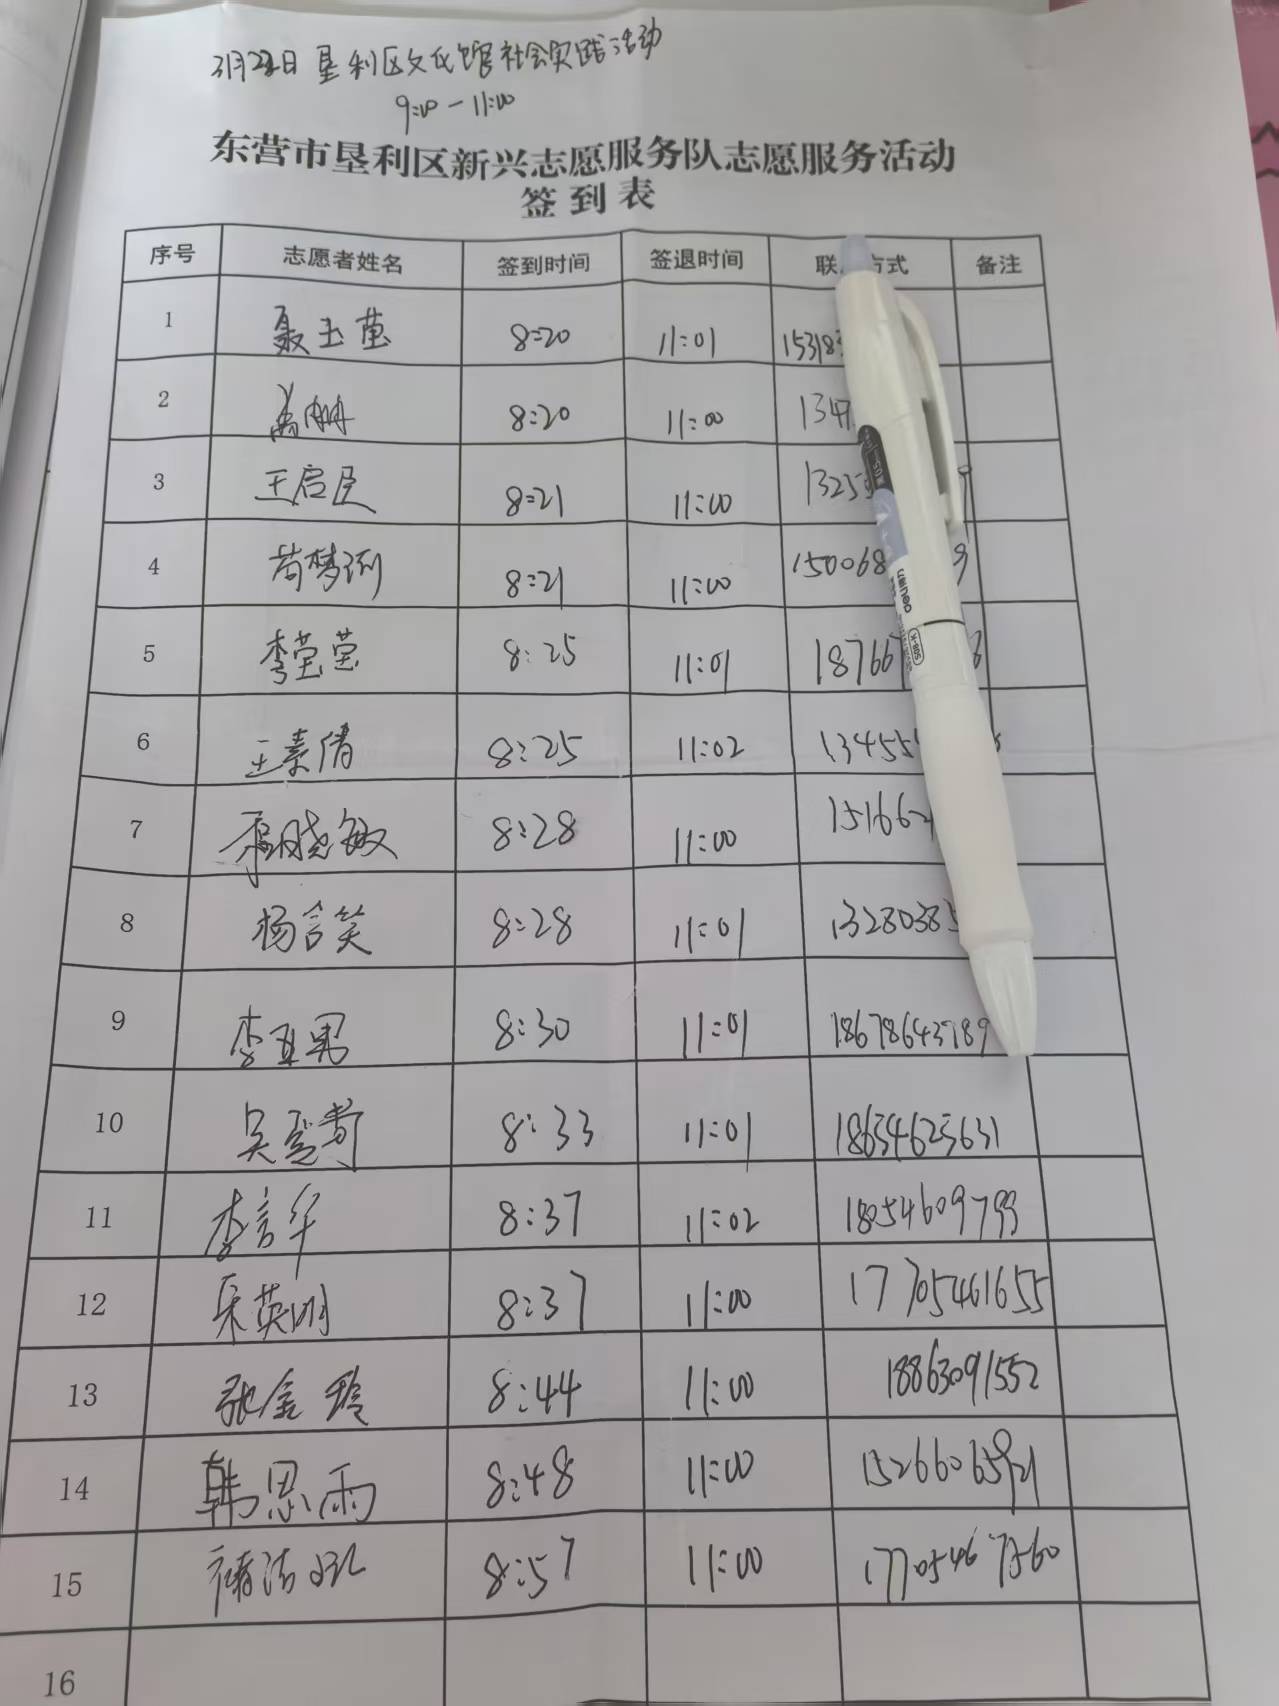 3月22日 垦利区文化馆社会实践活动
9:00-11:00
东营市垦利区新兴志愿服务队志愿服务活动
签到表
序号 志愿者姓名 签到时间 签退时间 联 方式 备注
1 聂玉莹 8:20 11:01 153183
2 8:20 11:00 1347
3 王启臣 8:21 11:00 1325
4 苟梦 8:21 11:00 150068 9
5 李莹莹 8:25 11:01 18766 8
6 王素倩 8:25 11:02 13455
7 晓敏 8:28 11:00 15166
8 杨言笑 8:28 11:01 13280385
9 李亚男 8:30 11:01 18678643789
10 吴爱 8:33 11:01 18654623631
11 李言华 8:37 11:02 18054609799
12 英明 8:37 11:00 17705461655
13 张金玲 8:44 11:00 18863091552
14 韩思雨 8:48 11:00 15266065921
15 8:57 11:00 17705467560
16
deli 得力
S08-K